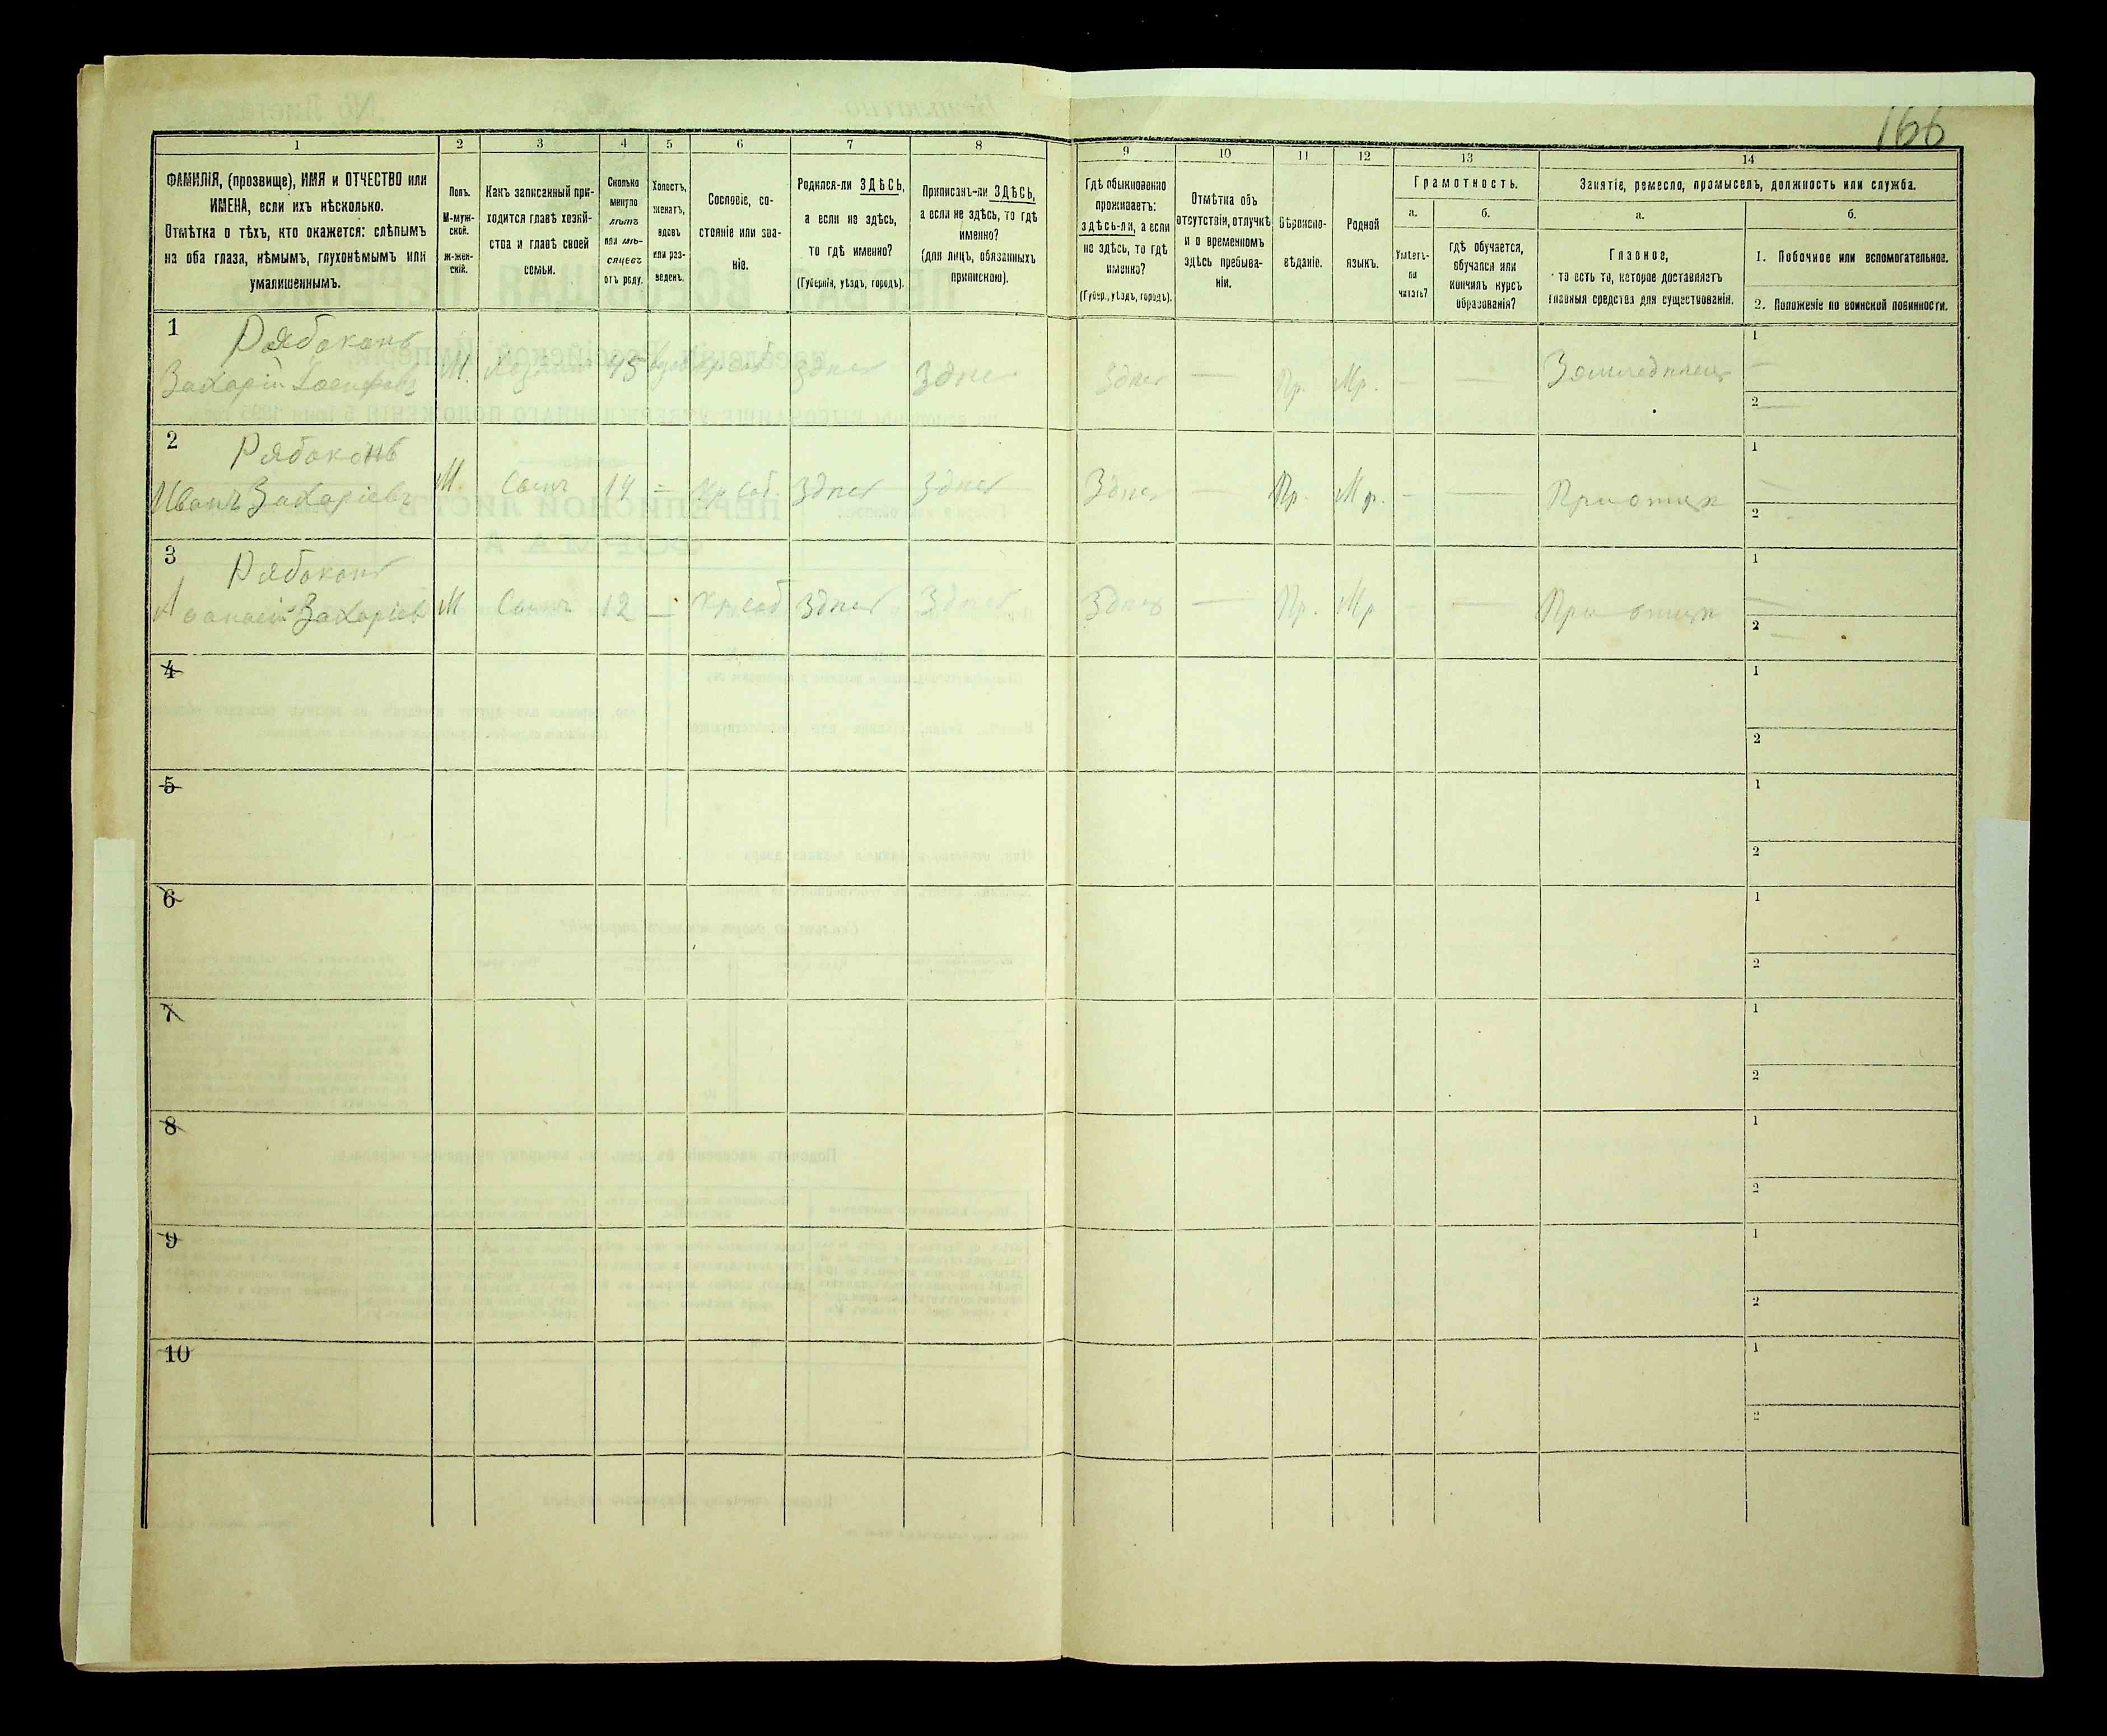 166
1
2
3
4
5
6
7
8
9
10
11
12
13
14
ФАМИЛІЯ, (прозвище), ИМЯ и ОТЧЕСТВО или
ИМЕНА, если ихъ нѣсколько.
Отмѣтка о тѣхъ, кто окажется: слѣпымъ
на оба глаза, нѣмымъ, глухонѣмымъ или
умалишеннымъ.
Полъ.
М-муж-
ской.
Ж-жен-
скій.
Какъ записанный при-
ходится главѣ хозяй-
ства и главѣ своей
семьи.
Сколько
минуло
лѣтъ
или мѣ-
сяцевъ
отъ роду.
Холостъ,
женатъ,
вдовъ
или раз-
веденъ.
Сословіе, со-
стояніе или зва-
ніе.
Родился-ли ЗДѢСЬ,
а если не здѣсь,
то гдѣ именно?
(Губернія, уѣздъ, городъ).
Приписанъ-ли ЗДѢСЬ,
а если не здѣсь, то гдѣ
именно?
(для лицъ, обязанныхъ
припискою).
Гдѣ обыкновенно
проживаетъ:
здѣсь-ли, а если
не здѣсь, то гдѣ
именно?
(Губер., уѣздъ, городъ).
Отмѣтка объ
отсутствіи, отлучкѣ
и о временномъ
здѣсь пребыва-
ніи.
Вѣроиспо-
вѣданіе.
Родной
языкъ.
Грамотность.
а.
Умѣетъ-
ли
читать?
б.
гдѣ обучается,
обучался или
кончилъ курсъ
образованія?
Занятіе, ремесло, промыселъ, должность или служба.
а.
Главное,
то есть то, которое доставляетъ
главныя средства для существованія.
б.
1. Побочное или вспомогательное.
2. Положеніе по воинской повинности.
1 Рябоконь
Захарій Іосифовъ М. Хозяинъ 45 Здѣсь Здѣсь Здѣсь — Пр. Мр. — — Земледѣлецъ 1 —
2 —
2 Рябоконь
Иванъ Захаріевъ М. Сынъ 14 — Кр. соб. Здѣсь Здѣсь Здѣсь — Пр. Мр. — — При отцѣ 1 —
2 —
3 Рябоконь
Аѳанасій Захаріев М Сынъ 12 — Кр. соб Здѣсь Здѣсь Здѣсь — Пр. Мр — — При отцѣ 1 —
2 —
4 1
2
5 1
2
6 1
2
7 1
2
8 1
2
9 1
2
10 1
2